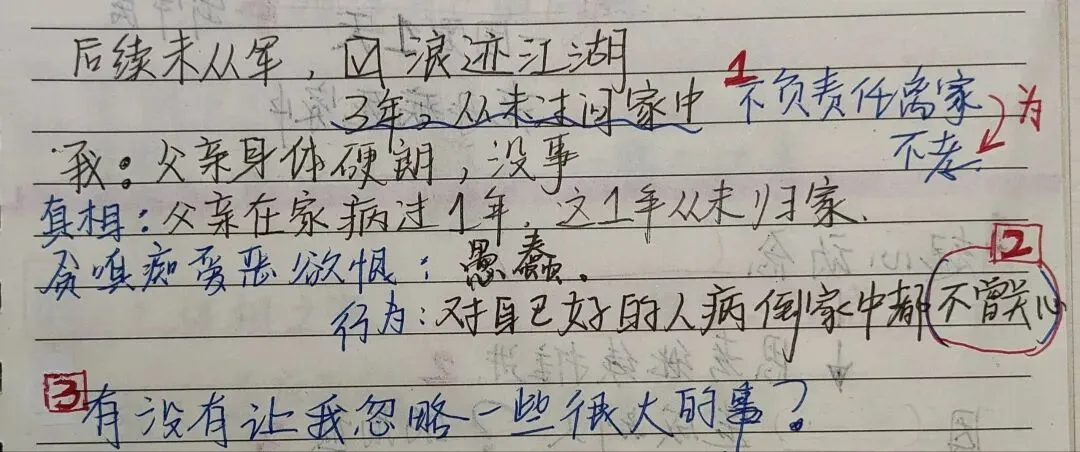 后续未从军，☑浪迹江湖
3年。从未过问家中 1 不负责任离家
为
我：父亲身体硬朗，没事 不孝
真相：父亲在家病过1年，这1年从未归家.
贪嗔痴爱恶欲恨：愚蠢. 2
行为：对自己好的人病倒家中都不曾关心
3 有没有让我忽略一些很大的事？